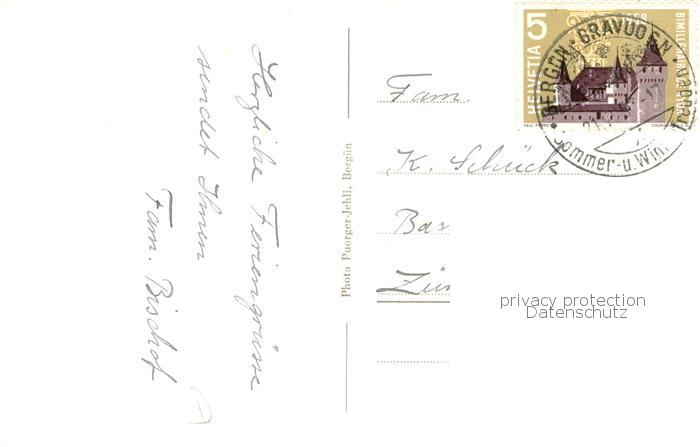 Herzliche Feriengrüsse
sendet Ihnen
Fam. Bischof
Photo Puorger-Jehli, Bergün
Fam.
K. Schück
Bas
Zür
privacy protection
Datenschutz
5
HELVETIA
BERGÜN
Sommer-u. Win